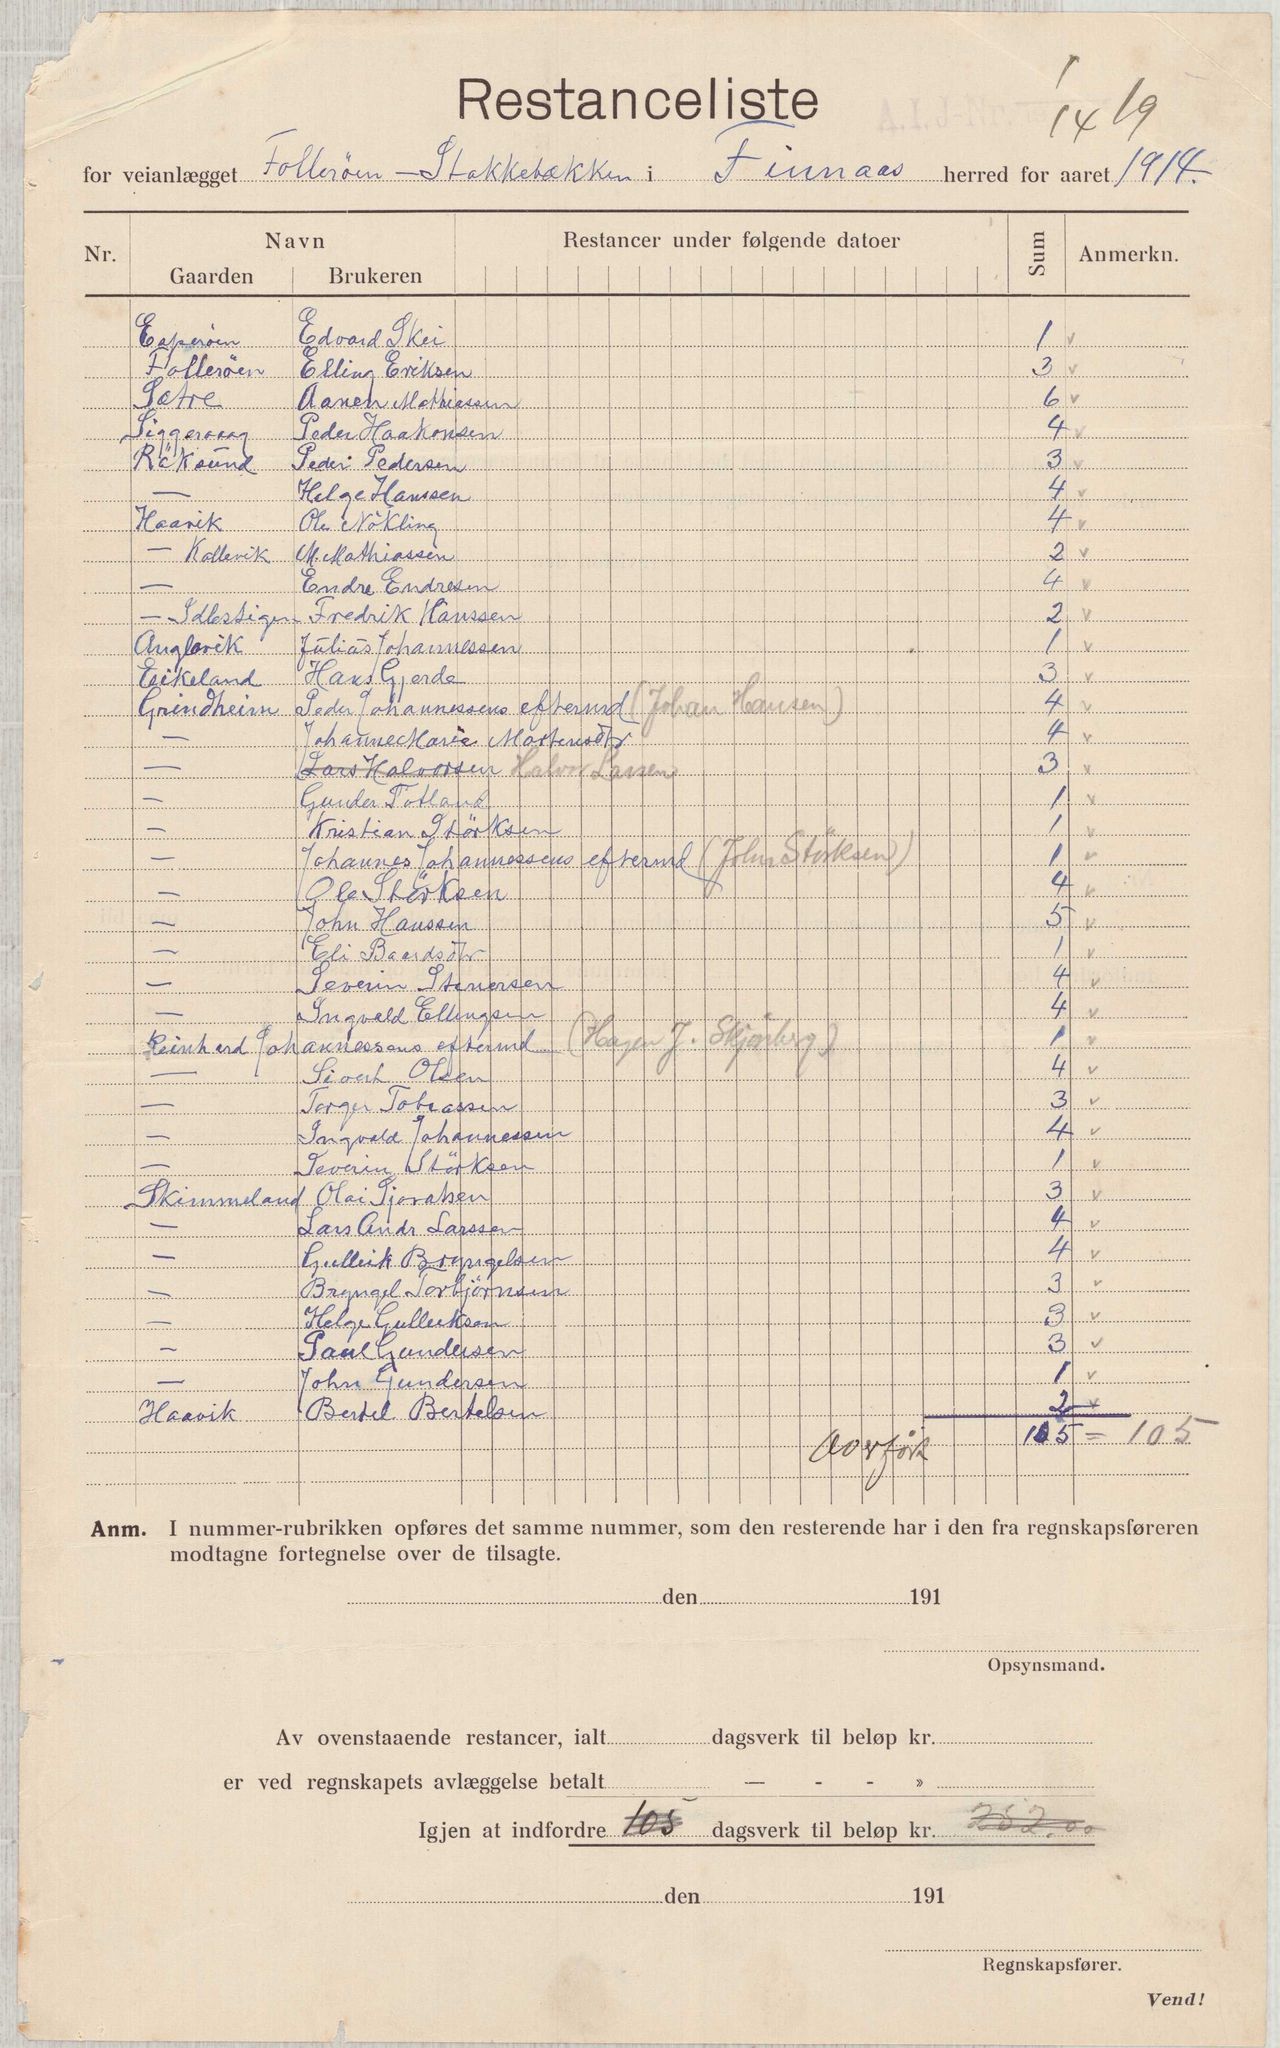 Restanceliste
14/9
for veianlægget Folleröen – Stokkebækken i Finnaas herred for aaret 1914.
Nr. Navn Restancer under følgende datoer Sum Anmerkn.
Gaarden Brukeren
Edvard Skei 1 v
Folleröen Elling Eriksen 3 v
Sætre Aanen Mathiassen 6 v
Siggervaag Peder Haakonsen 4 v
Röksund Peder Pedersen 3 v
— Helge Hanssen 4 v
Haavik Ole Nökling 4 v
— Kallevik M. Mathiassen 2 v
— Endre Endresen 4 v
— Fredrik Hanssen 2 v
Anglevik Julius Johannessen 1 v
Eikeland Hans Gjerde 3 v
Grindheim Peder Johannessens eftermd (Johan Hansen) 4 v
— Johanne Marie Mortensdtr 4 v
— Lars Halvorsen Halvor Larsen 3 v
— Gunder Totland 1 v
— Kristian Störksen 1 v
— Johannes Johannessens eftermd (John Störksen) 1 v
— Ole Störksen 4 v
— John Hanssen 5 v
— Eli Baardsdtr 1 v
— Severin Stenersen 4 v
— Ingvald Ellingsen 4 v
Reinhard Johannessens eftermd (Hagen J. Skjørberg) 1 v
— Sivert Olsen 4 v
— Torger Tobiassen 3 v
— Ingvald Johannessen 4 v
— Severin Störksen 1 v
Skimmeland Olai Sjovatsen 3 v
— Lars Andr Larssen 4 v
— Gulleik Bryngelsen 4 v
— Bryngel Torbjörnsen 3 v
— Helge Gulleiksen 3 v
— Paul Gundersen 3 v
— John Gundersen 1 v
Haavik Bertel Bertelsen 2 v
Overført 105 = 105
Anm. I nummer-rubrikken opføres det samme nummer, som den resterende har i den fra regnskapsføreren
modtagne fortegnelse over de tilsagte.
den 191
Opsynsmand.
Av ovenstaaende restancer, ialt dagsverk til beløp kr.
er ved regnskapets avlæggelse betalt — - - »
Igjen at indfordre 105 dagsverk til beløp kr. 252.00
den 191
Regnskapsfører.
Vend!